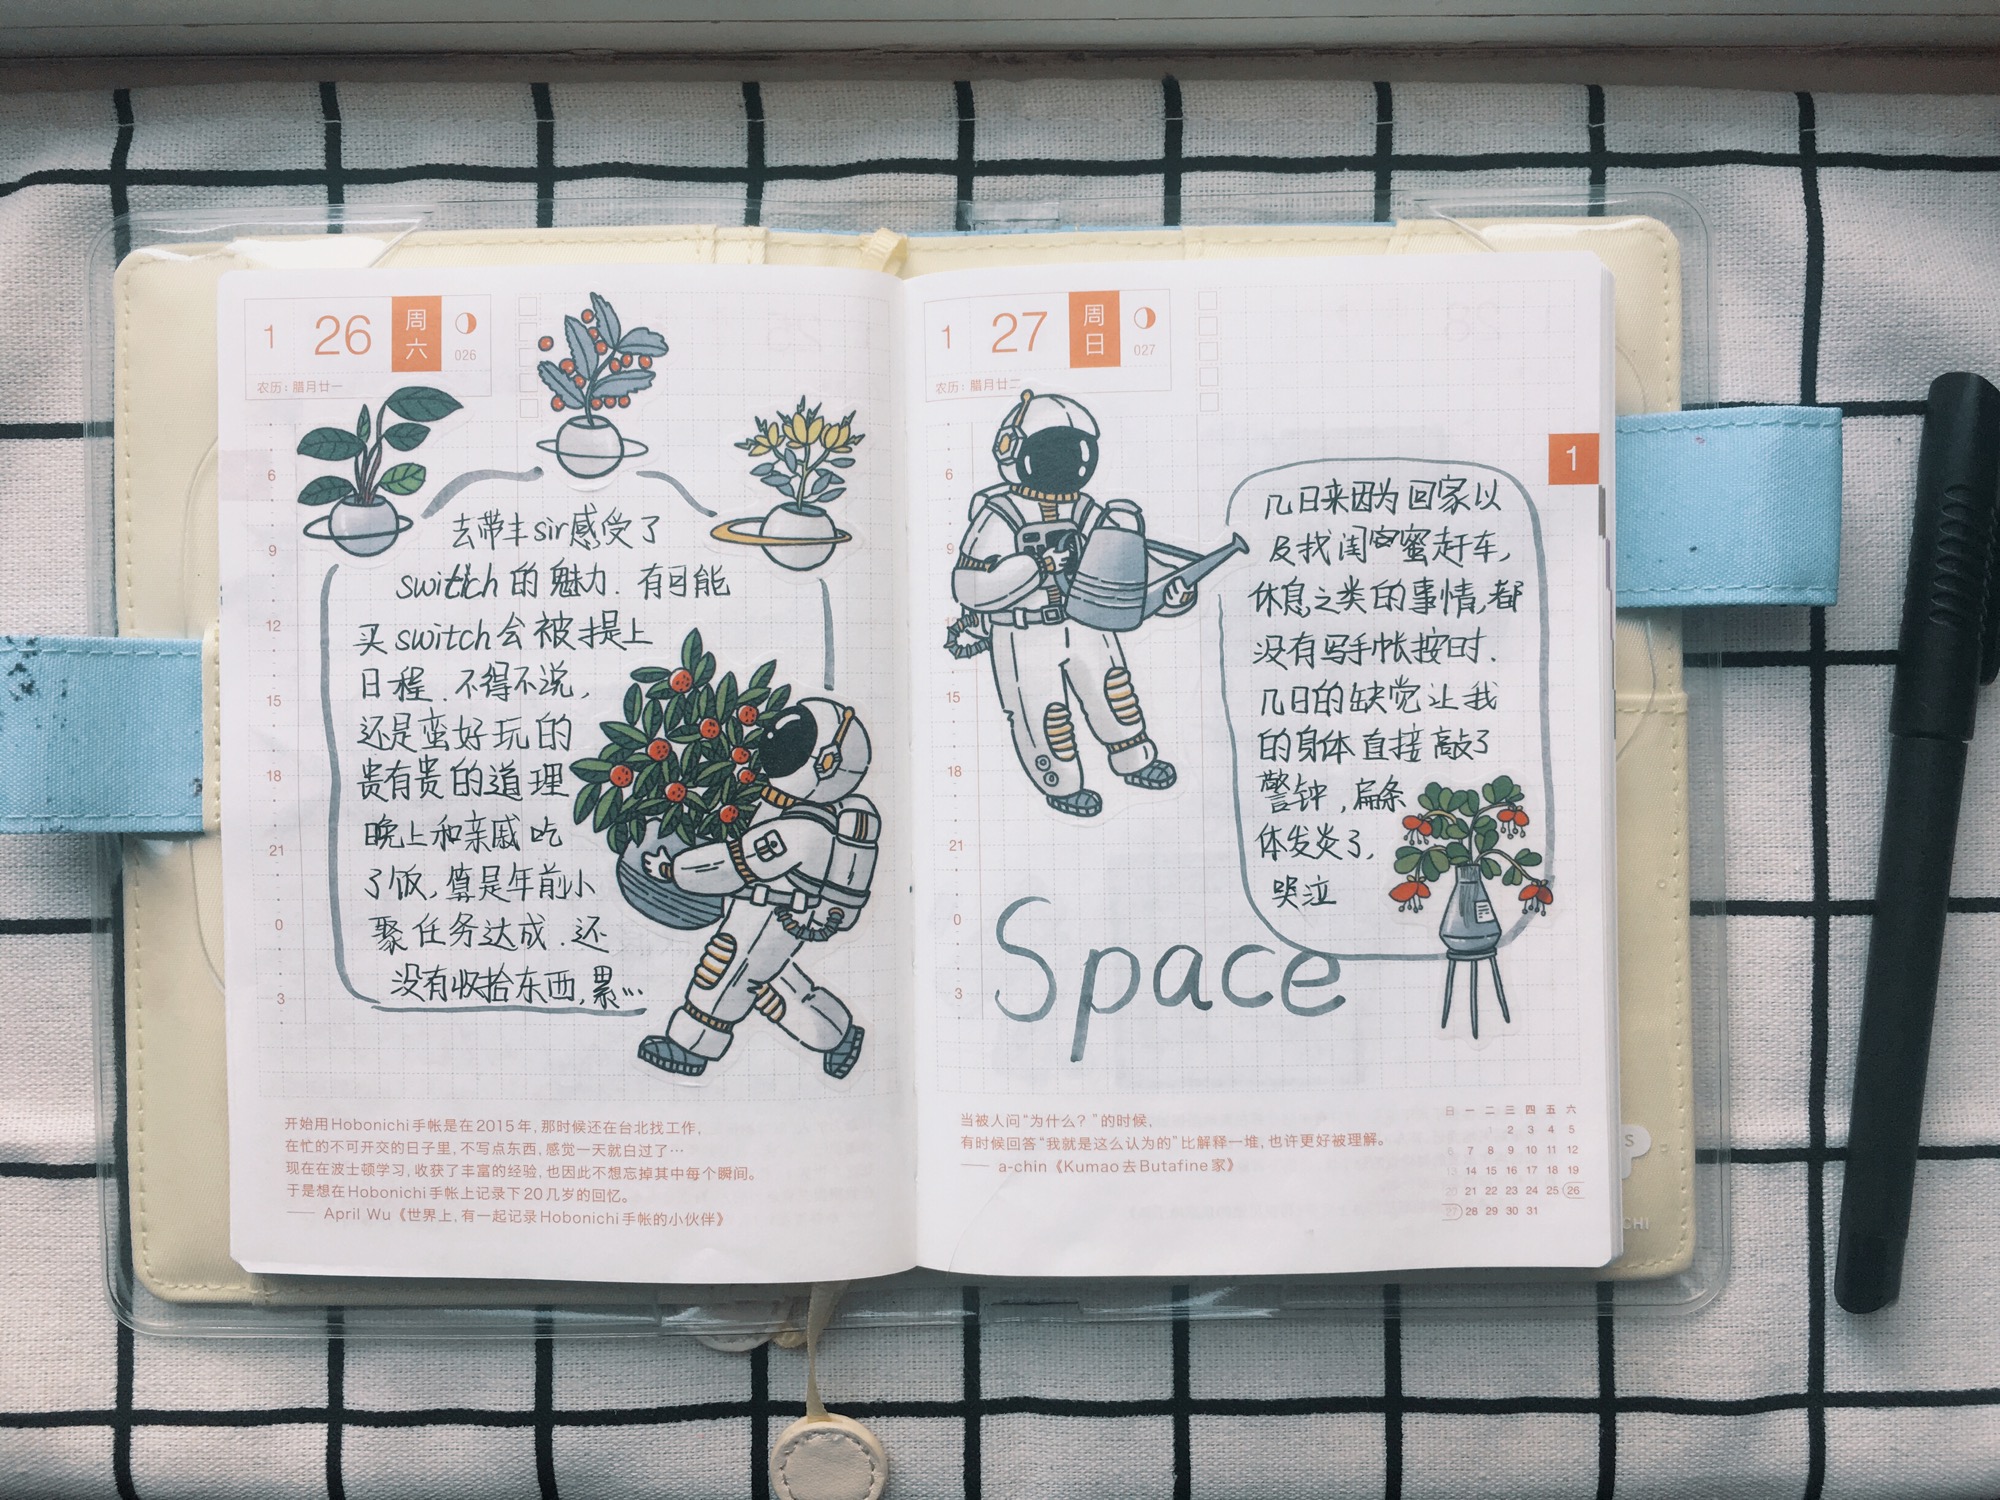 1 26 周六
026
农历：腊月廿一
6
9
12
15
18
21
0
3
去带丰sir感受了
switch的魅力. 有可能
买switch会被提上
日程. 不得不说,
还是蛮好玩的
贵有贵的道理
晚上和亲戚吃
了饭, 算是年前小
聚任务达成. 还
没有收拾东西, 累…
开始用Hobonichi手帐是在2015年, 那时候还在台北找工作,
在忙的不可开交的日子里, 不写点东西, 感觉一天就白过了…
现在在波士顿学习, 收获了丰富的经验, 也因此不想忘掉其中每个瞬间。
于是想在Hobonichi手帐上记录下20几岁的回忆。
—— April Wu《世界上, 有一起记录Hobonichi手帐的小伙伴》
1 27 周日
027
农历：腊月廿二
1
6
9
15
18
21
0
3
几日来因为回家以
及找闺蜜赶车,
休息之类的事情,都
没有写手帐按时.
几日的缺觉让我
的身体直接敲了
警钟, 扁条
体发炎了,
哭泣
Space
当被人问“为什么？”的时候,
有时候回答“我就是这么认为的”比解释一堆, 也许更好被理解。
—— a-chin《Kumao去Butafine家》
日 一 二 三 四 五 六
1 2 3 4 5
6 7 8 9 10 11 12
13 14 15 16 17 18 19
20 21 22 23 24 25 26
27 28 29 30 31
S
CHI